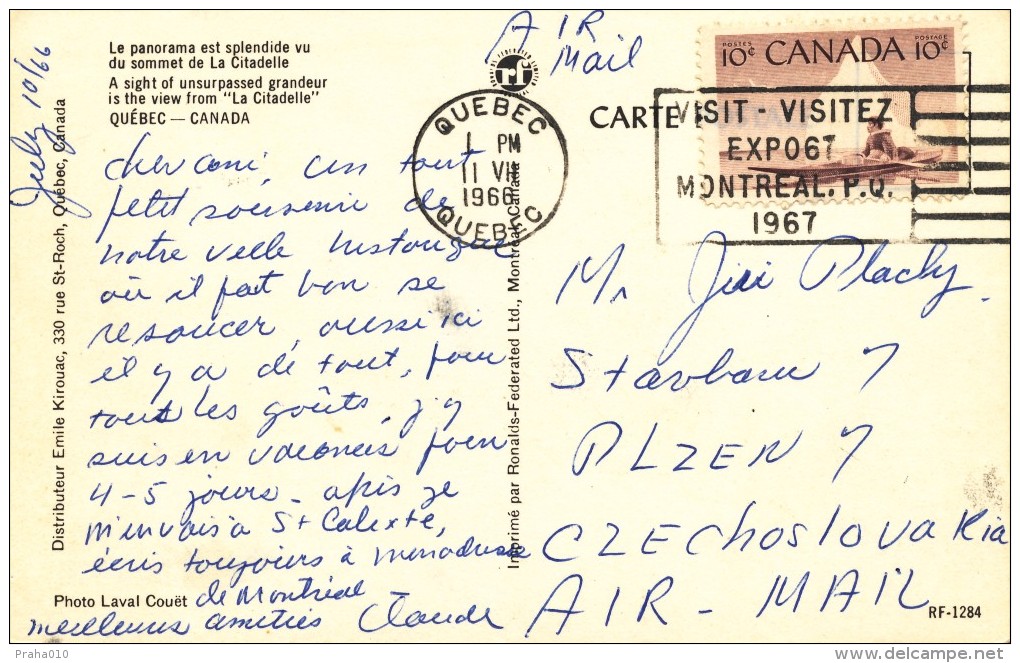 Le panorama est splendide vu
du sommet de La Citadelle
A sight of unsurpassed grandeur
is the view from "La Citadelle"
QUÉBEC — CANADA
July 10/66
Cher ami, un tout
petit souvenir de
notre ville historique
où il fait bon se
ressourcer, aussi ici
il y a de tout, pour
tous les goûts, j'y
suis en vacances pour
4-5 jours - après je
m'en vais à St Calixte,
écris toujours à mon adresse
de Montréal
meilleures amitiés Claude
Distributeur Emile Kirouac, 330 rue St-Roch, Québec, Canada
Photo Laval Couët
Imprimé par Ronalds-Federated Ltd., Montreal, Canada
AIR
Mail
rf
QUEBEC
1 PM
11 VII
1966
QUEBEC
CARTE
POSTES POSTAGE
10¢ CANADA 10¢
VISIT - VISITEZ
EXPO67
MONTREAL. P.Q.
1967
Mr Jiri Plachy
Stavbaru 7
PLZEN 7
CZEChoslovakia
AIR - MAIL
RF-1284
Praha010
delcampe.net